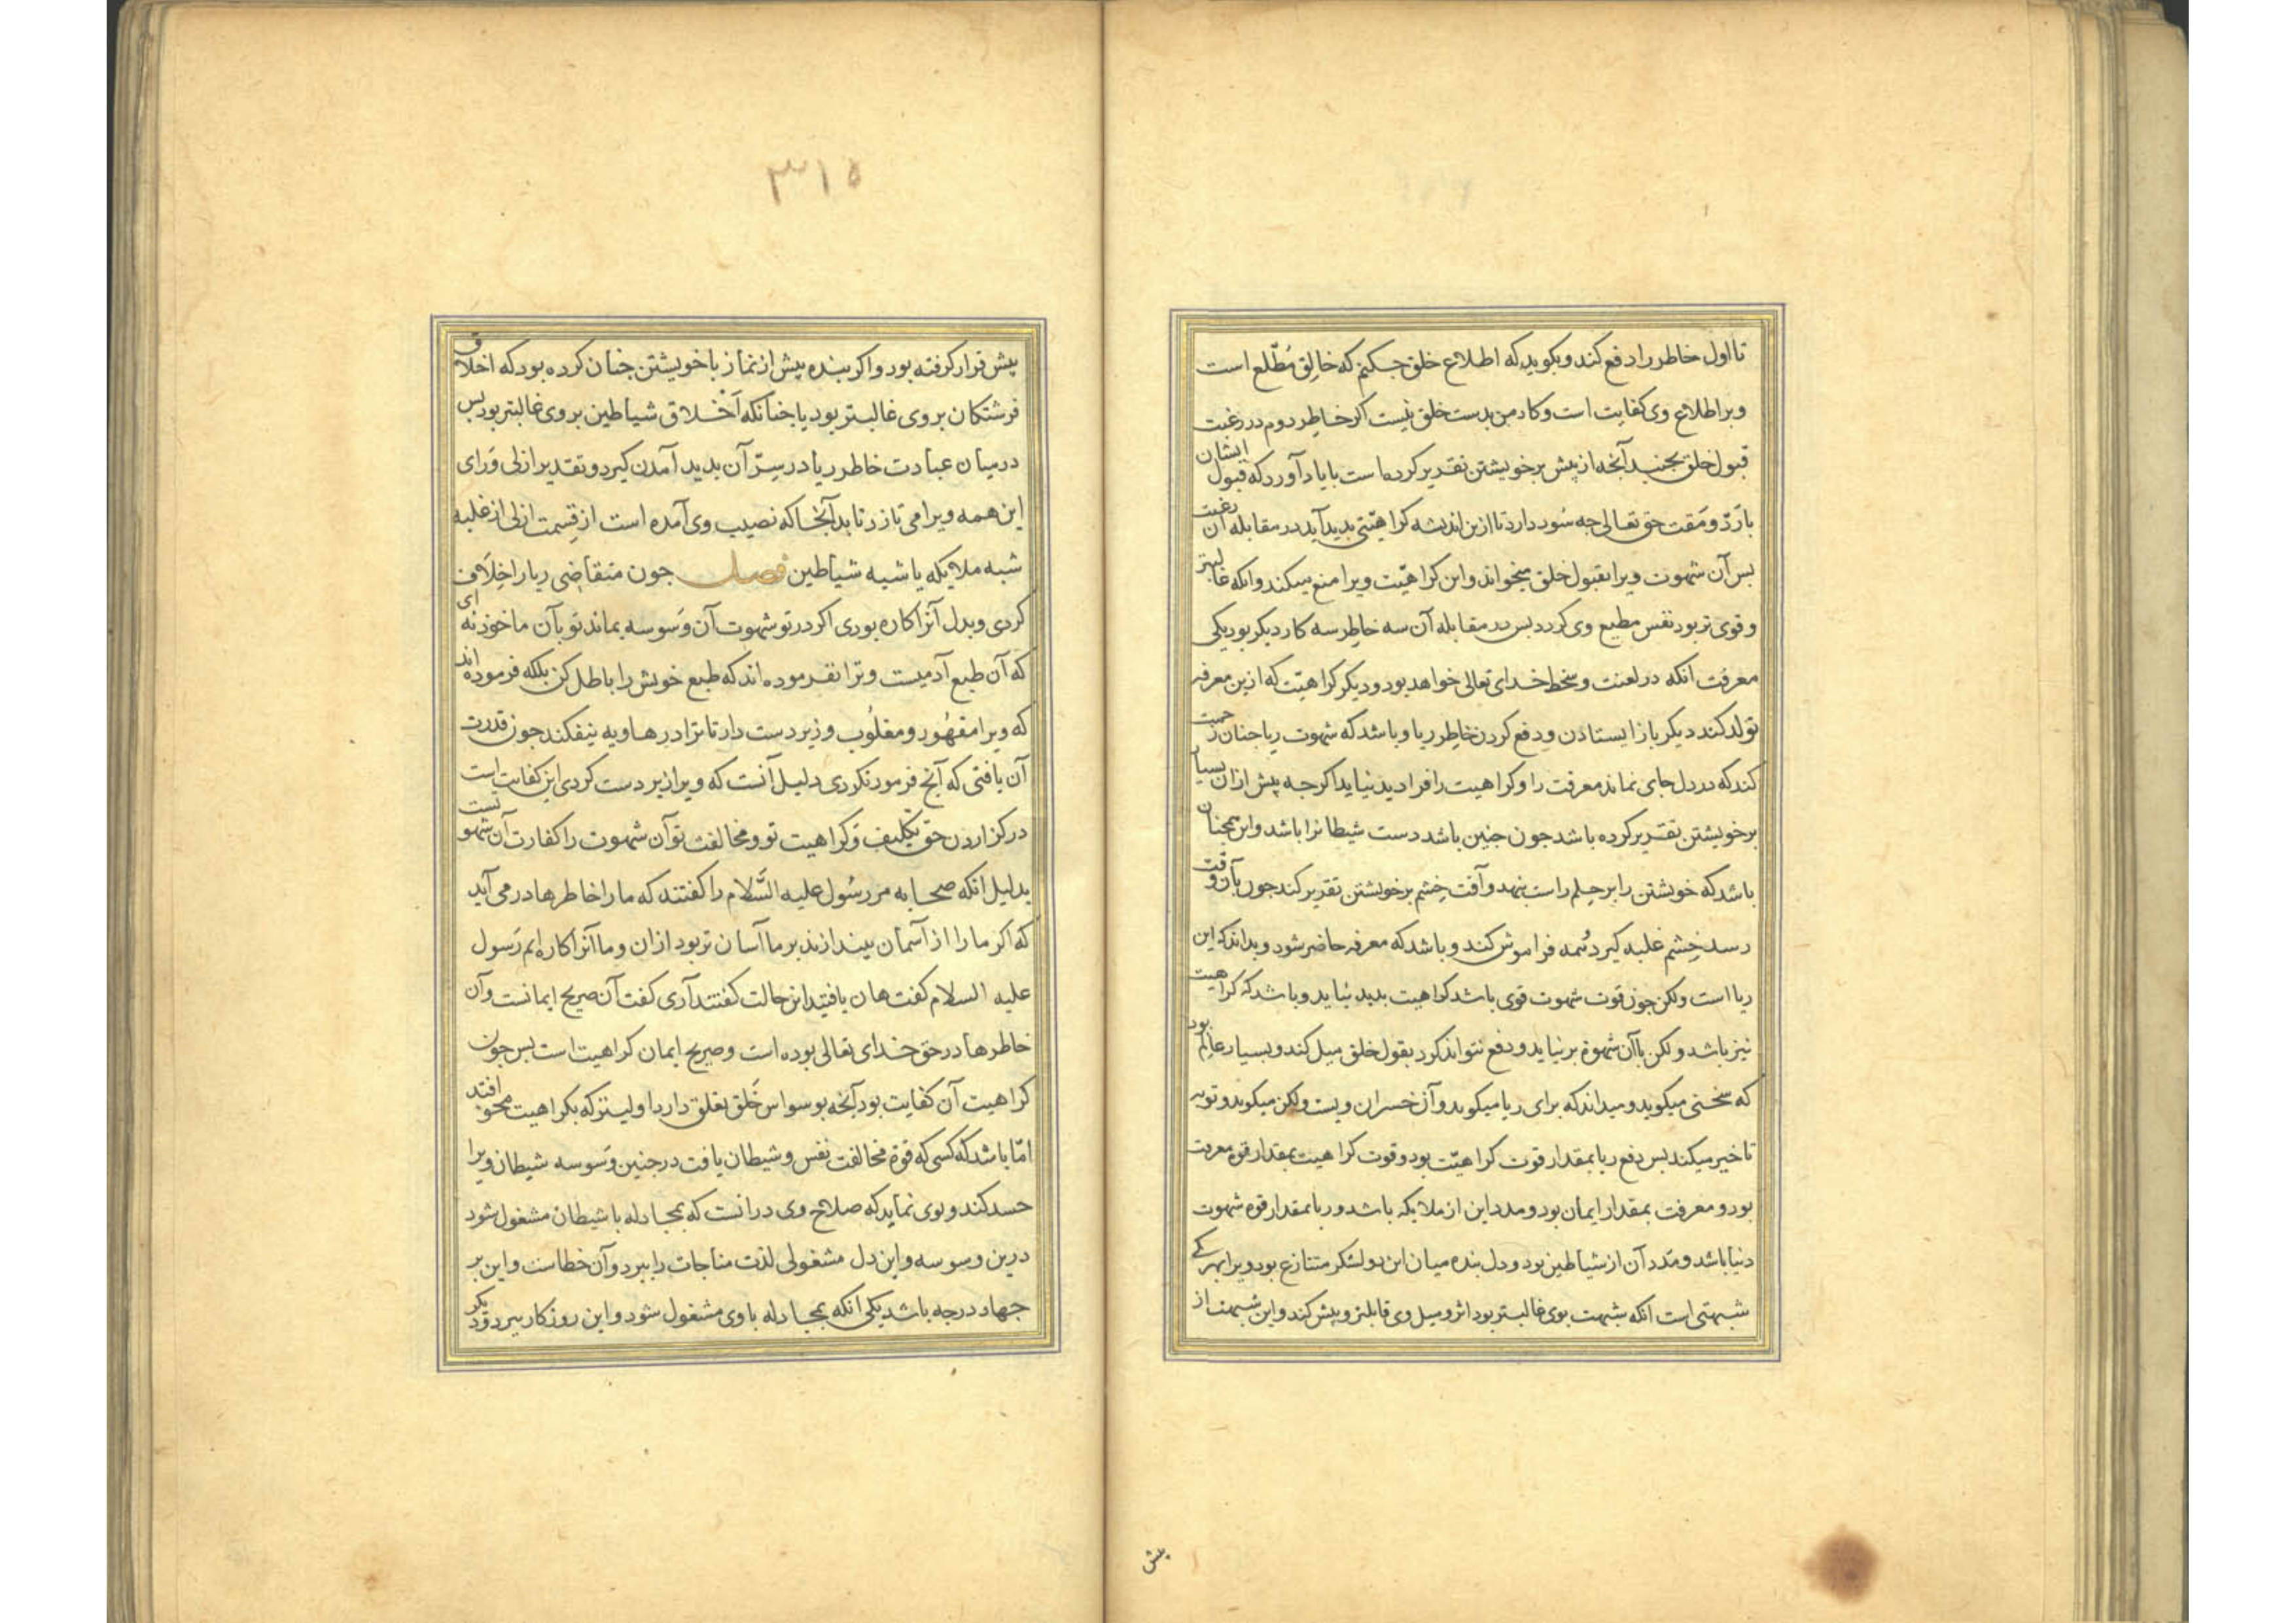 تا اول خاطر را دفع کند و بکوید که اطلاع خلق جکنم که خالِق مُطّلع است
و برا اطلاع وی کفایت است و کار من بدست خلق نیست اکر خاطِر دوم در رغبت
قبول خلق بجنبد آنچه از پیش بر خویشتن تقدیر کرده است بایاد آورد که قبول ایشان
با رَدّ و مَقت حق تعالی جه سُود دارد تا ازین اندیشه کراهیّتی بدید آید در مقابله آن رغبت
بس آن شهوت ویرا بقبول خلق میخواند و این کراهیّت ویرا منع میکند و انکه غالبتر
و قوی تر بود نفس مطیع وی کردد بس در مقابله آن سه خاطِر سه کار دیکر بود یکی
معرفت انکه در لعنت و سخط خدای تعالی خواهد بود و دیکر کراهیّت که ازین معرفه
تولد کند دیکر باز ایستادن و دفع کردن خاطِر ریا و باشد که شهوت ریا جنان زحمت
کند که در دل جای نماند معرفت را و کراهیت را فرا دید نیاید اکرجه پیش ازان بسیار
بر خویشتن تقدیر کرده باشد جون جنین باشد دست شیطانرا باشد و این همجنان
باشد که خویشتن را بر حِلم راست بنهد و آفت خِشم بر خویشتن تقدیر کند جون بآن وقت
رسد خِشم غلبه کیرد و همه فراموش کند و باشد که معرفه حاضر شود و بداند که این
ریا است ولکن جون قوت شهوت قوی باشد کراهیت بدید نیاید و باشد که کراهیت
نیز باشد ولکن باآن شهوة بر نیاید و دفع نتواند کرد بقول خلق میل کند و بسیار عالِم بود
که سخنی میکوید و میداند که برای ریا میکوید و آن خسران ویست ولکن میکوید و توبه
تاخیر میکند بس دفع ریا بمقدار قوت کراهیّت بود و قوت کراهیت بمقدار قوة معرفت
بود و معرفت بمقدار ایمان بود و مدد این از ملایکه باشد و ریا بمقدار قوة شهوت
دنیا باشد و مَدد آن از شیاطین بود و دل بنده میان این دو لشکر متنازع بود ویرا بهر یکی
شبهتی است انکه شبهت بوی غالبتر بود اثر و میل وی قابلتر و پیش کند و این شبهت از
پیش
۳۱۵
پیش فرا کرفته بود و اکر بنده پیش از نماز با خویشتن جنان کرده بود که اخلاق
فرشتکان بر وی غالبتر بود یا جنانکه اَخلاق شیاطین بر وی غالبتر بود بس
در میان عبادت خاطر ریا در سِرّ آن بدید آمدن کیرد و تقدیر ازلی وَرای
این همه ویرا می تازد تا بدآنجا که نصیب وی آمده است از قِسمت ازلی از غلبه
شبه ملایکه یا شبه شیاطین فصل جون متقاضی ریا را خِلاف
کردی و بدل آنرا کاره بودی اکر در تو شهوت آن وَسوسه بماند تو بآن ماخوذ نه ای
که آن طبع آدمیست و ترا نفرموده اند که طبع خویش را باطل کن بلکه فرموده اند
که ویرا مقهُور و مغلُوب و زیر دست دار تا ترا در هاویه نیفکند جون قدرت
آن یافتی که آنج فرمود نکردی دلیل آنست که ویرا زیر دست کردی این کفایت است
در کزاردن حق تکلیف و کراهیت تو و مخالفت تو آن شهوت را کفارت آن شهوتست
بدلیل انکه صحابه مر رسُول علیه السَّلام را کفتند که ما را خاطرها در می آید
که اکر ما را از آسمان بیندازند بر ما آسان تر بود ازان و ما آنرا کاره ایم رَسول
علیه السلام کفت هان یافتید این حالت کفتند آری کفت آن صریح ایمانست و آن
خاطرها در حق خدای تعالی بوده است و صریح ایمان کراهیت است بس جون
کراهیت آن کفایت بود آنچه بوسواس خَلق تعلق دارد اولیتر که بکراهیت محو افتد
امّا باشد که کسی که قوة مخالفت نفس و شیطان یافت در جنین وَسوسه شیطان ویرا
حسد کند و بوی نماید که صلاح وی درانست که بمجادله با شیطان مشغول شود
درین وسوسه و این دل مشغولی لذت مناجات را ببرد و آن خطاست و این بر
جهار درجه باشد یکی انکه بمجادله با وی مشغول شود و این روزکار ببرد و دیکر